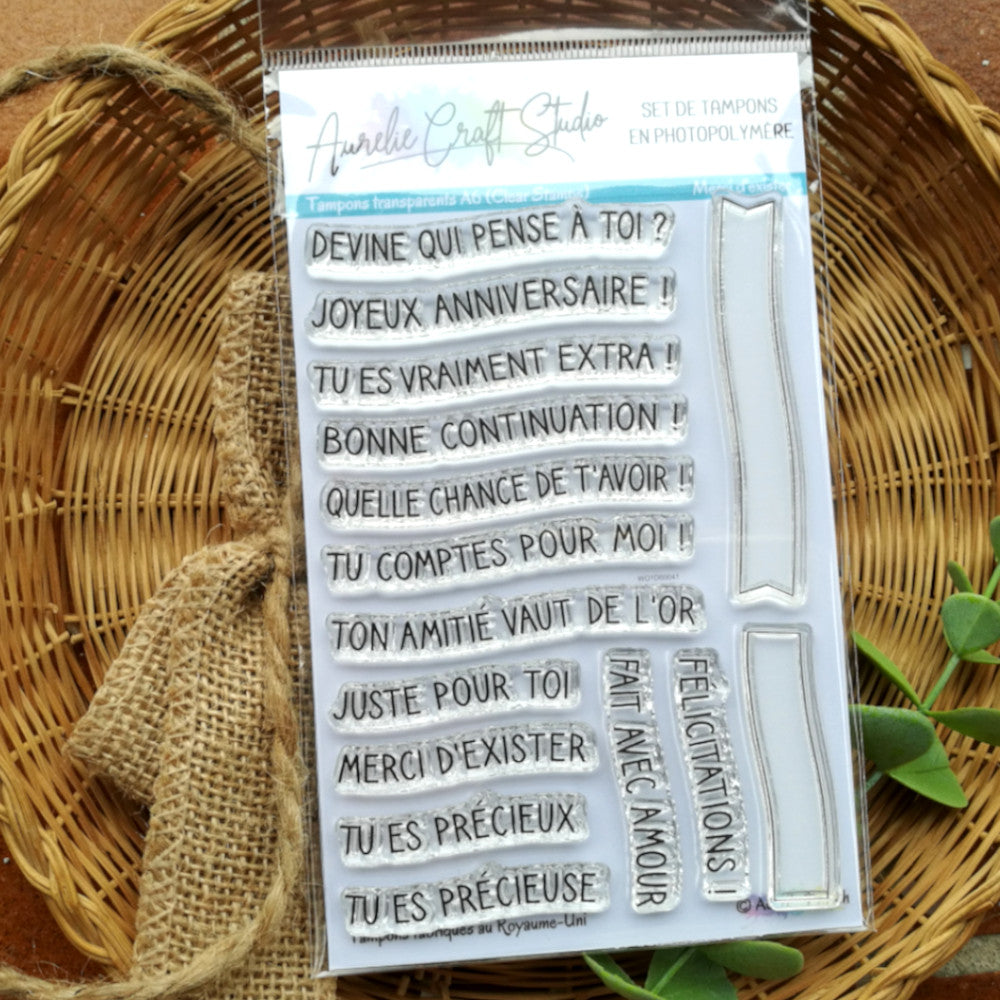 Aurelie Craft Studio
SET DE TAMPONS
EN PHOTOPOLYMÈRE
Tampons transparents A6 (Clear Stamps)
Merci d'exister
DEVINE QUI PENSE À TOI ?
JOYEUX ANNIVERSAIRE !
TU ES VRAIMENT EXTRA !
BONNE CONTINUATION !
QUELLE CHANCE DE T'AVOIR !
TU COMPTES POUR MOI !
TON AMITIÉ VAUT DE L'OR
JUSTE POUR TOI
MERCI D'EXISTER
TU ES PRÉCIEUX
TU ES PRÉCIEUSE
FAIT AVEC AMOUR
FÉLICITATIONS !
Tampons fabriqués au Royaume-Uni
©